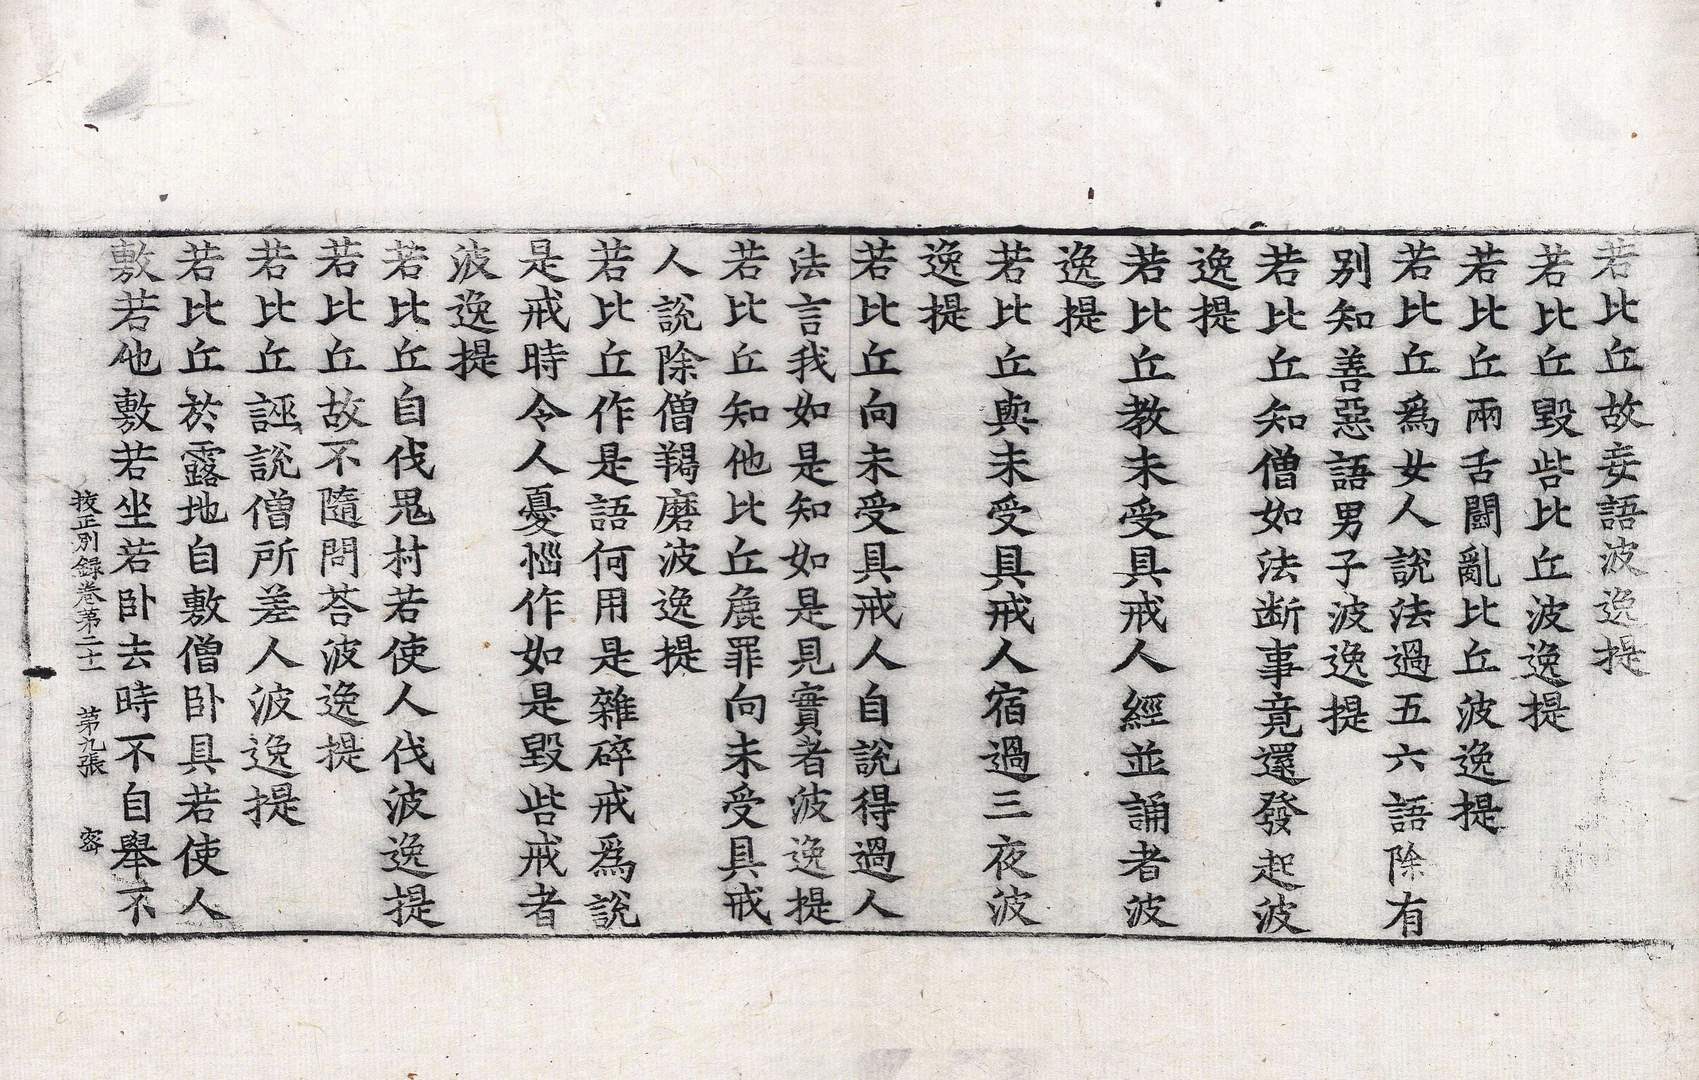 若比丘故妄語波逸提
若比丘毀呰比丘波逸提
若比丘兩舌鬪亂比丘波逸提
若比丘爲女人說法過五六語除有
別知善惡語男子波逸提
若比丘知僧如法断事竟還發起波
逸提
若比丘教未受具戒人經並誦者波
逸提
若比丘與未受具戒人宿過三夜波
逸提
若比丘向未受具戒人自說得過人
法言我如是知如是見實者波逸提
若比丘知他比丘麁罪向未受具戒
人說除僧羯磨波逸提
若比丘作是語何用是雜碎戒爲說
是戒時令人憂惱作如是毀呰戒者
波逸提
若比丘自伐鬼村若使人伐波逸提
若比丘故不隨問荅波逸提
若比丘誣說僧所差人波逸提
若比丘於露地自敷僧卧具若使人
敷若他敷若坐若卧去時不自舉不
挍正別録卷第二十 第九張 密